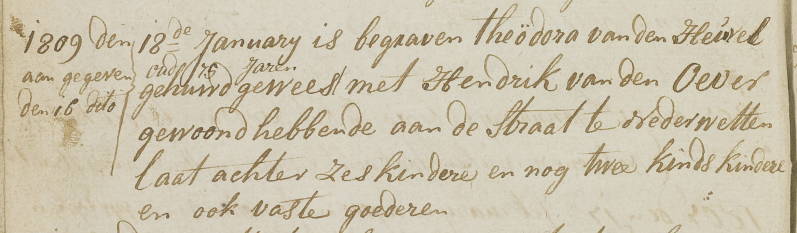 1809 den 18de January is begraven theödora van den Heuvel
aan gegeven oudt 75 Jaren
den 16 dito gehuwd geweest met Hendrik van den Oever
gewoond hebbende aan de Straat te Nederwetten
laat achter zes kindere en nog twee kinds kindere
en ook vaste goederen